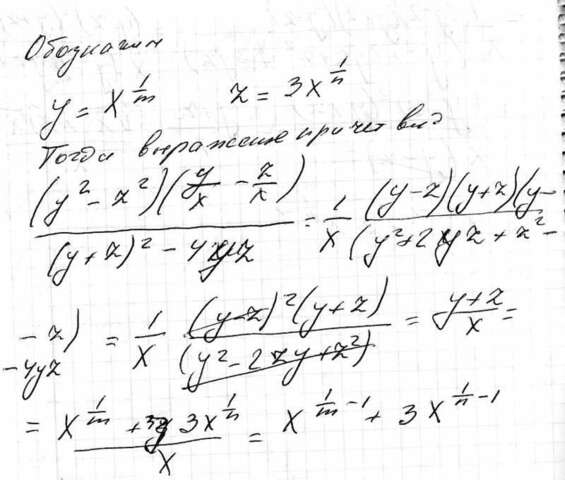 Обозначим
y = x^(1/m)    z = 3x^(1/n)
Тогда выражение примет вид
(y² - z²)(y/x - z/x) / ((y+z)² - 4yz) = 1/x (y-z)(y+z)(y- / (y²+2yz+z²-
-z) / -4yz = 1/x (y-z)²(y+z) / (y²-2zy+z²) = (y+z)/x =
= (x^(1/m) + 3x^(1/n)) / x = x^(1/m - 1) + 3x^(1/n - 1)